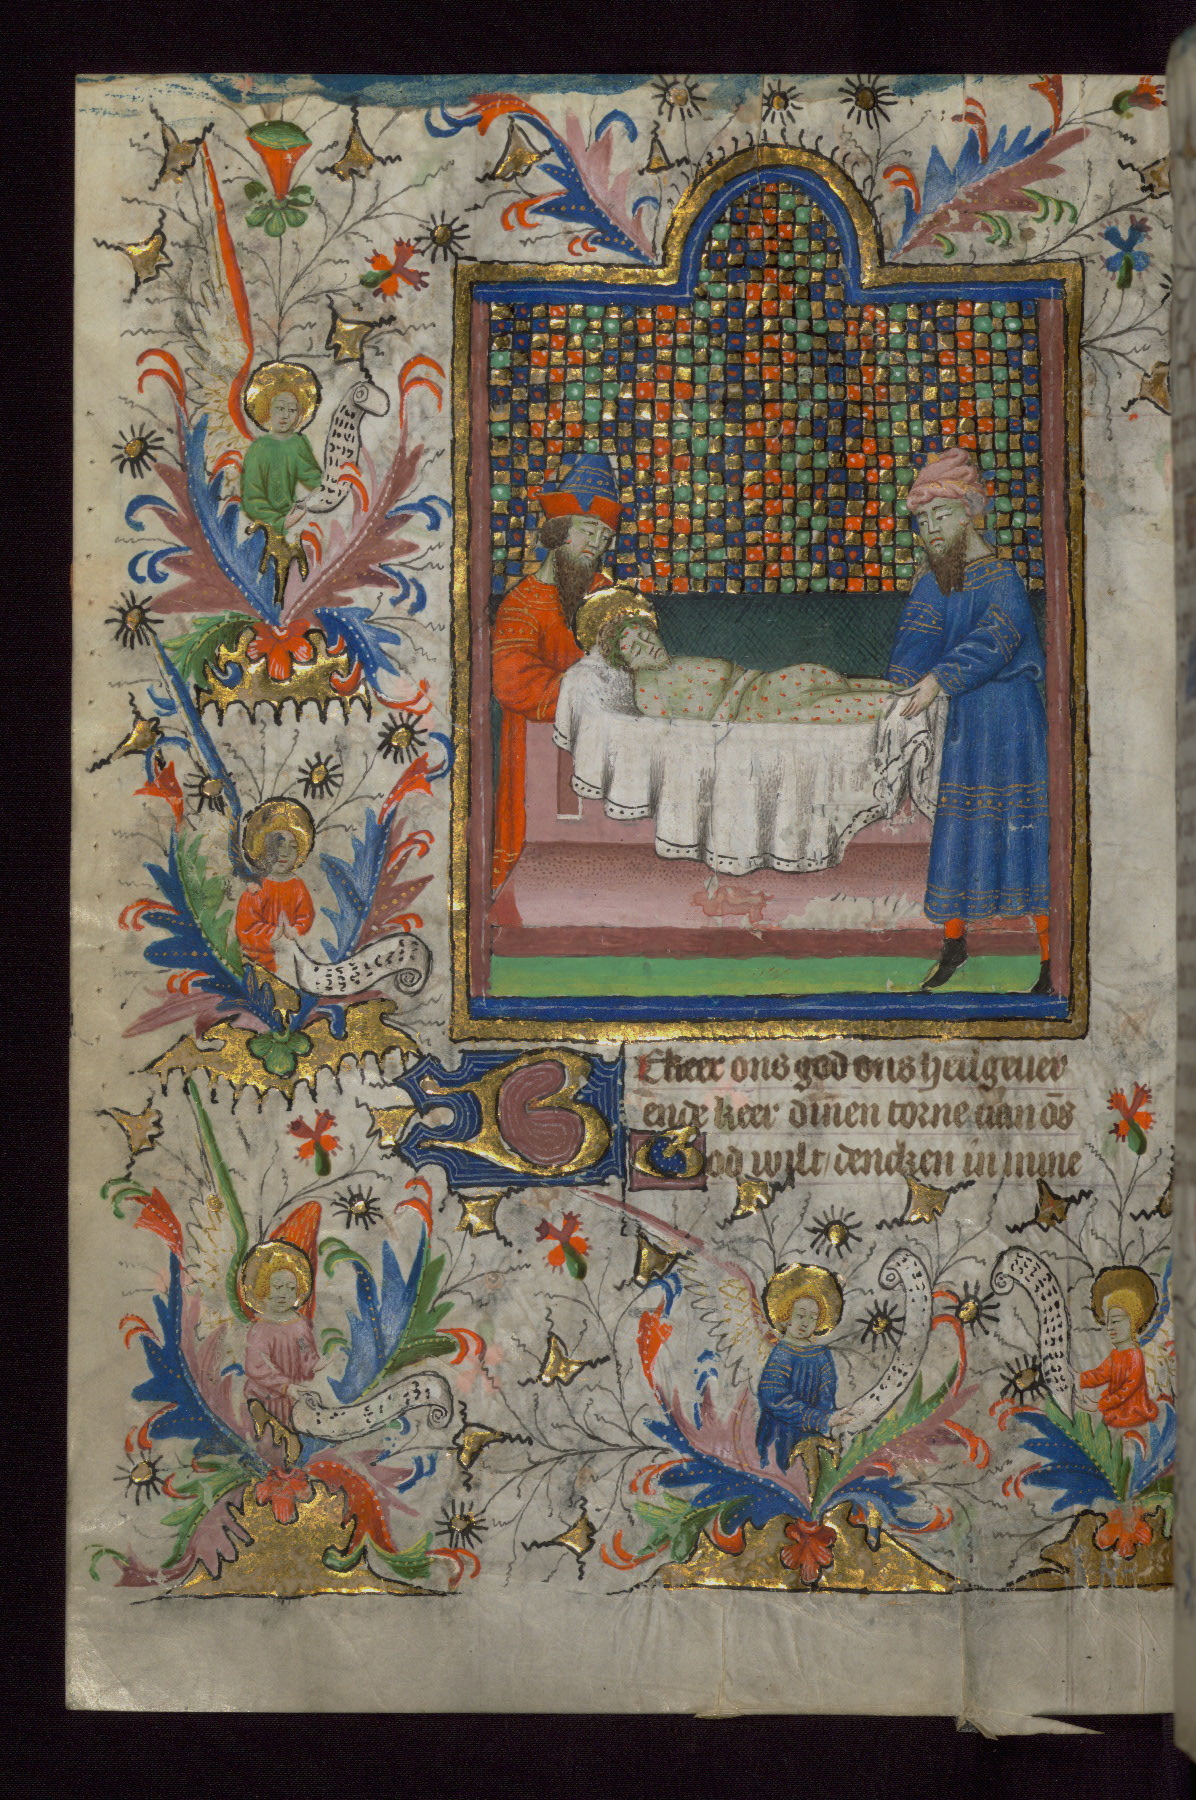 BEkeer ons god ons heilgeuer
ende keer dinen torne uan os̄
God wilt dencken in mine